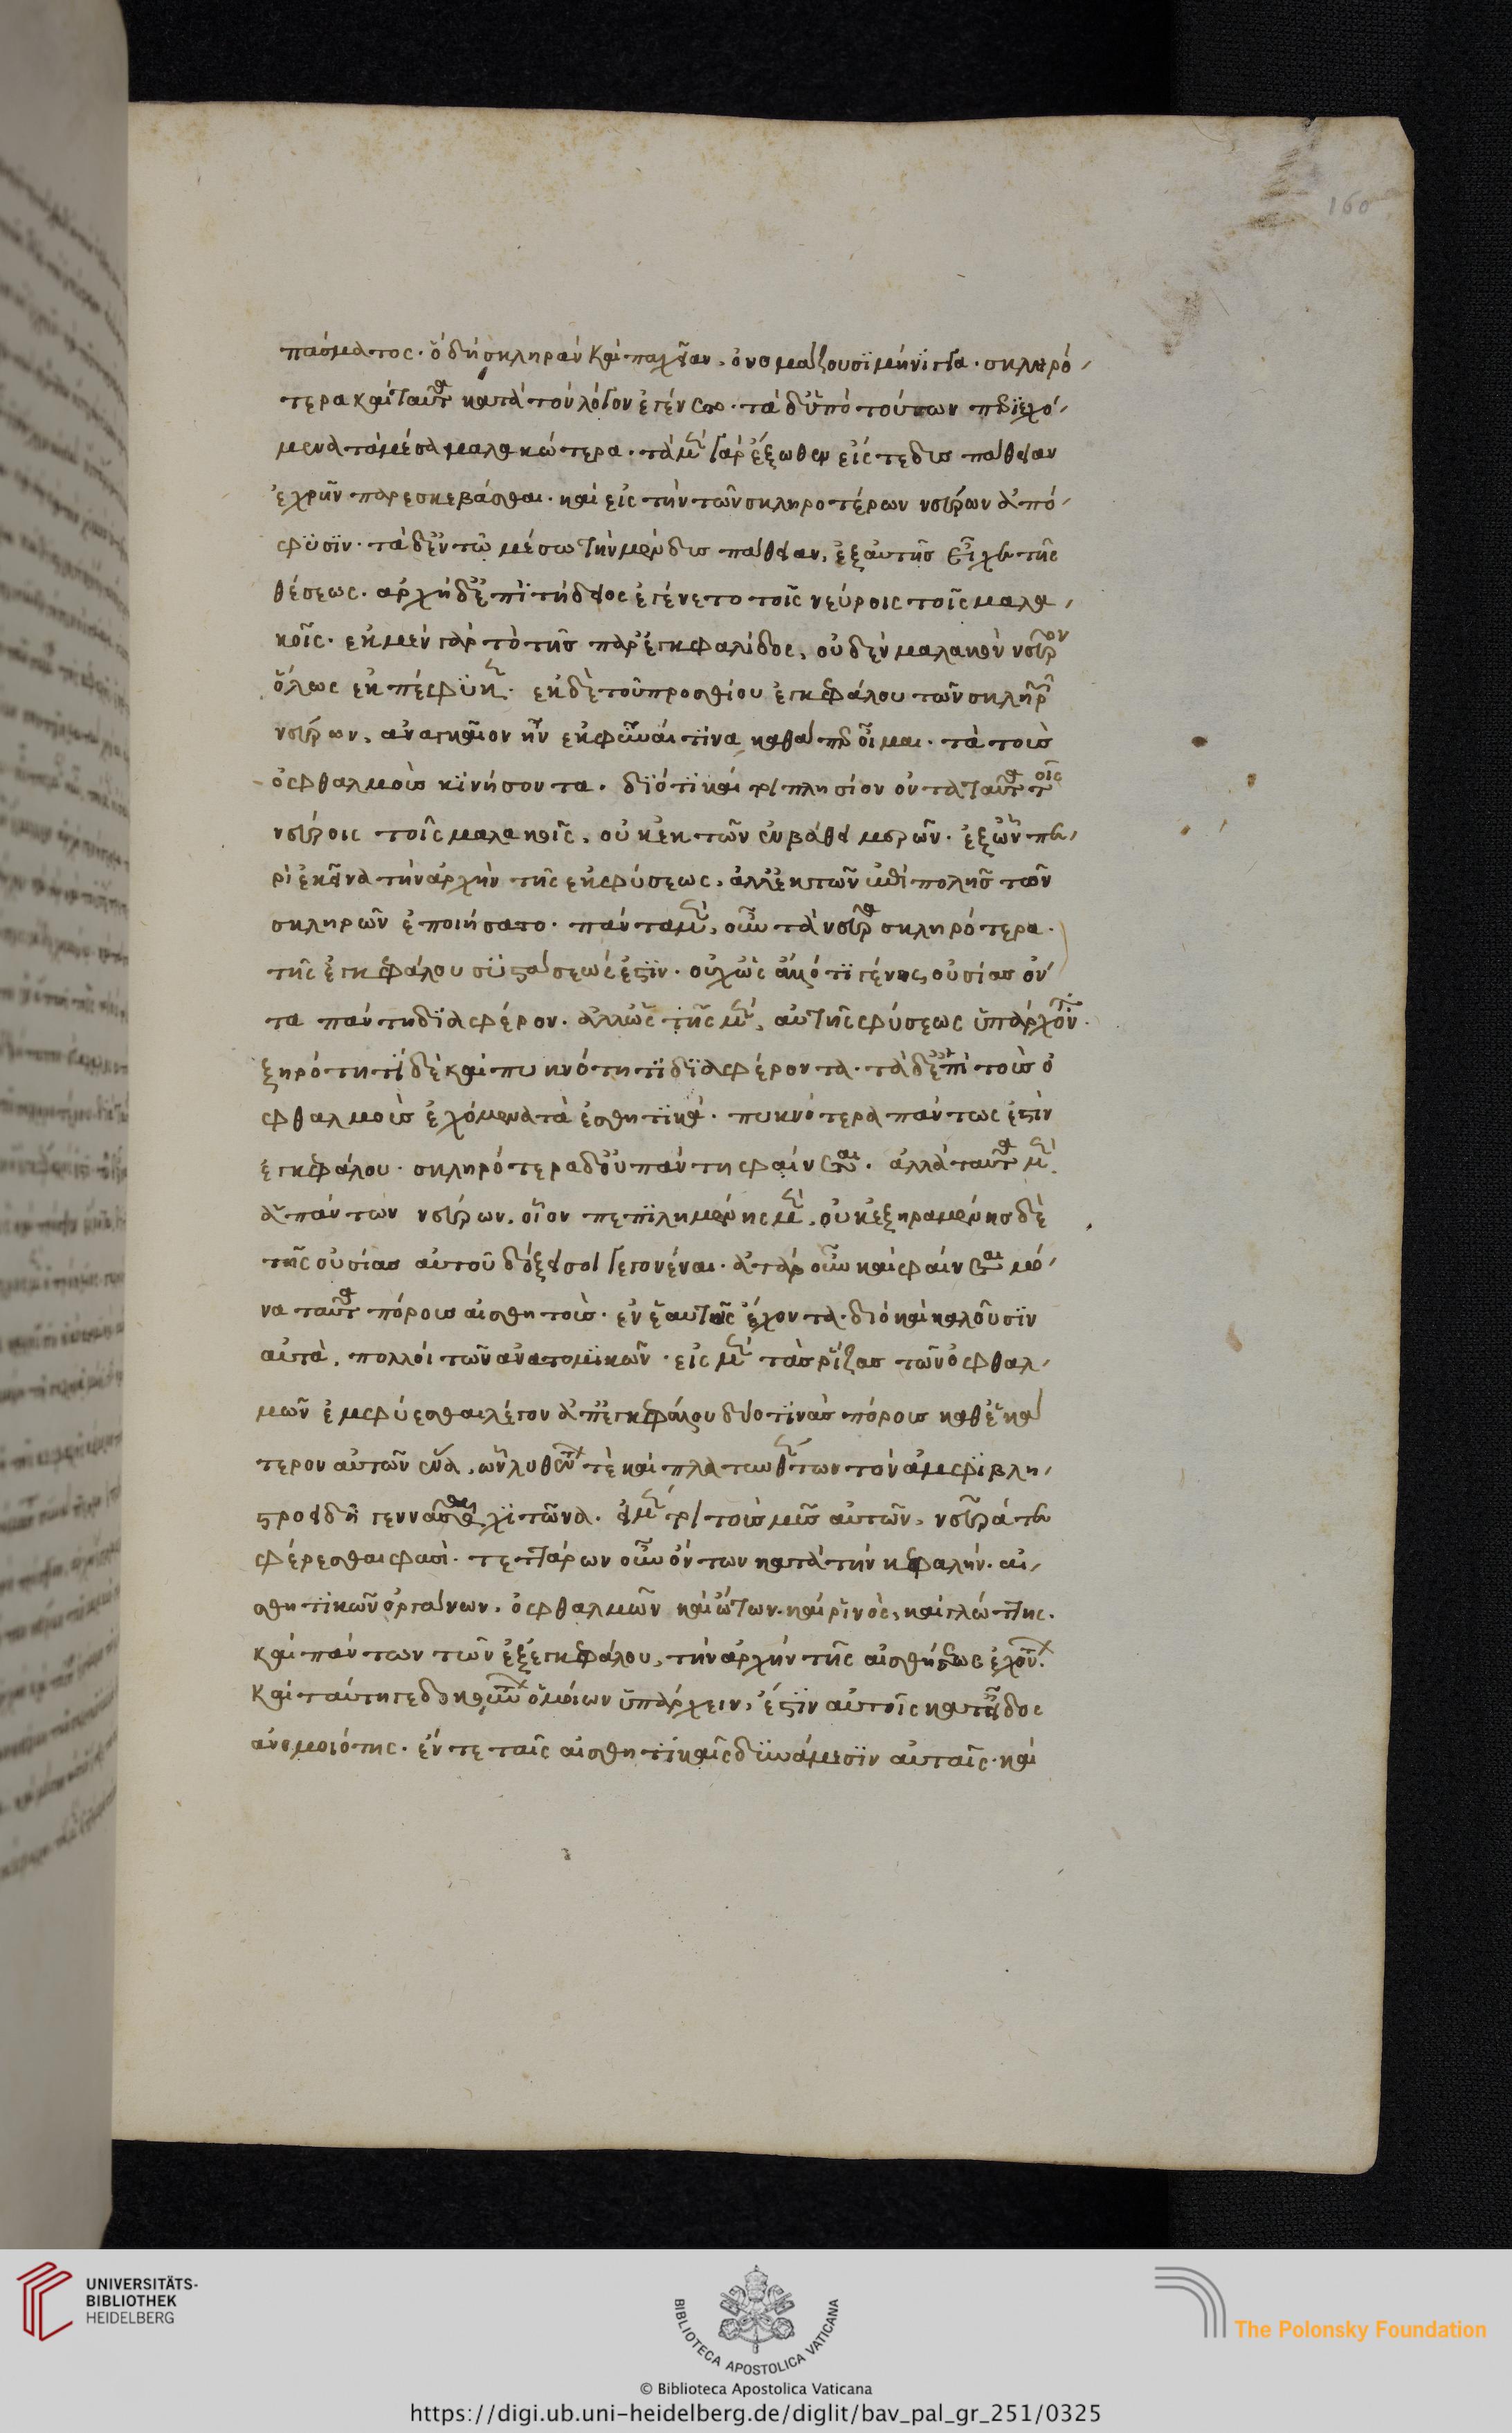 160
πάσματος· ὃ δὴ σκληρὰν καὶ παχεῖαν, ὀνομάζουσϊ μήνϊγγα· σκληρό-
τερα καὶ ταῦτα κατὰ τὸν λόγον ἐγένετο· τὰ δ' ὑπὸ τούτων περϊεχό-
μενα τὰ μέσα μαλακώτερα· τὰ μὲν γὰρ ἔξωθεν εἴς τε δυσπάθειαν
ἐχρῆν παρεσκευάσθαι· καὶ εἰς τὴν τῶν σκληροτέρων νεύρων ἀπό-
φϋσϊν· τὰ δ' ἐν τῷ μέσω τὴν μὲν δυσπάθειαν, ἐξ αὐτῆς εἶχε τῆς
θέσεως· ἀρχὴ δ' ἐπϊτήδειος ἐγένετο τοῖς νεύροις τοῖς μαλα-
κοῖς· ἐκ μὲν γὰρ τὸ τῆς παρεγκεφαλίδος, οὐδὲν μαλακὸν νεῦρον
ὅλως ἐκπέφϋκεν· ἐκ δὲ τοῦ προσθίου ἐγκεφάλου τῶν σκληρῶν
νεύρων, ἀναγκαῖον ἦν ἐκφῦναί τϊνα καθάπερ οἶμαι· τὰ τοὺς
ὀφθαλμοὺς κϊνήσοντα· δϊότϊ καὶ πλησίον ὄντα ταῦτα τοῖς
νεύροις τοῖς μαλακοῖς, οὐκ ἐκ τῶν ἐν βάθει μερῶν· ἐξ ὧνπε-
ρ ἐκεῖνα τὴν ἀρχὴν τῆς ἐκφύσεως, ἀλλ' ἐκ τῶν ἐπιπολῆς τῶν
σκληρῶν ἐποιήσατο· πάντα μὲν οὖν τὰ νεῦρα σκληρότερα·
τῆς ἐγκεφάλου συστάσεώς ἐστϊν· οὐχ ὡς ἄλλό τϊ γένος οὐσίας ὄν-
τα πάντη δϊαφέρον· ἀλλ' ὡς τῆς μὲν αὐτῆς φύσεως ὑπάρχοντα·
ξηρότητϊ δὲ καὶ πυκνότητϊ δϊαφέροντα· τὰ δ' ἐπὶ τοὺς ὀ
φθαλμοὺς ἐχόμενα τὰ ἐσθητϊκά· πυκνότερα πάντως ἐστὶν
ἐγκεφάλου· σκληρότερα δ' οὐ πάντη φαίνεται· ἀλλὰ ταῦτα μὲν
ἁπάντων νεύρων, οἷον πεπϊλημένης μὲν, οὐκ ἐξηραμένης δὲ
τῆς οὐσίας αὐτοῦ δόξει σοι γεγονέναι· ἀτὰρ οὖν καὶ φαίνεται μό-
να ταῦτα πόρους αἰσθητοὺς· ἐν ἑαυτοῖς ἔχοντα· διὸ καὶ καλοῦσϊν
αὐτὰ, πολλοὶ τῶν ἀνατομϊκῶν· εἰς μὲν τὰς ῥίζας τῶν ὀφθαλ-
μῶν ἐμφύεσθαι λέγοντες ἀπ' ἐγκεφάλου δύο τϊνὰς πόρους καθ' ἑκά
τερον αὐτῶν ἕνα, ὧν λυθέντων τὲ καὶ πλατυνθέντων τὸν ἀμφϊβλη-
στροειδῆ γεννᾶσθαι χϊτῶνα· τοὺς μῦς αὐτῶν, νεῦρά τε
φέρεσθαι φασὶ· τεττάρων οὖν ὄντων κατὰ τὴν κεφαλὴν· αἰ-
σθητϊκῶν ὀργάνων, ὀφθαλμῶν καὶ ὤτων· καὶ ῥϊνὸς, καὶ γλώττης·
καὶ πάντων τῶν ἐξ ἐγκεφάλου, τὴν ἀρχὴν τῆς αἰσθήσεως ἐχόντων·
καὶ ταύτη γε δοκούντων ὁμοίων ὑπάρχειν, ἔστϊν αὐτοῖς κατ' εἶδος
ἀνομοιότης· ἔν τε ταῖς αἰσθητϊκαῖς δϋνάμεσϊν αὐταῖς· καὶ
UNIVERSITÄTS-
BIBLIOTHEK
HEIDELBERG
BIBLIOTECA APOSTOLICA VATICANA
The Polonsky Foundation
© Biblioteca Apostolica Vaticana
https://digi.ub.uni-heidelberg.de/diglit/bav_pal_gr_251/0325